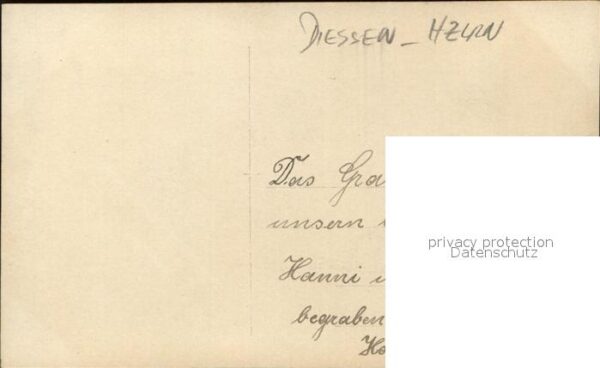 DIESSEN –
Das Gra
unsern
Hanni
begraben
privacy protection
Datenschutz